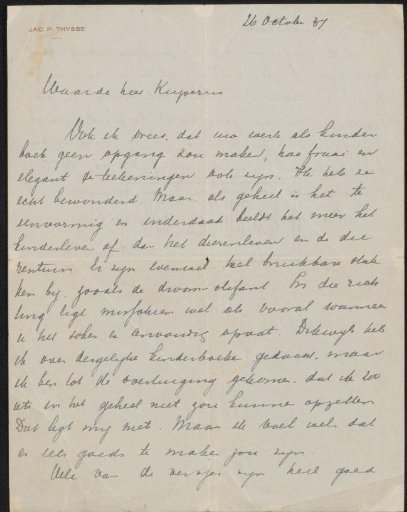 JAC. P. THYSSE
26 October 37
Waarde heer Kuyperus
Ook ik vrees, dat uw werk als kinder
boek geen opgang zou maken, hoe fraai en
elegant de teekeningen ook zijn. Ik heb ze
echt bewonderd. Maar als geheel is het te
eenvormig en inderdaad beeldt het meer het
kinderleven af dan het dierenleven en de die
rentuin. Er zijn evenwel heel bruikbare stuk
ken bij, zooals de droom olifant. In die rich
ting ligt misschien wel als vooral wanneer
u het sober en eenvoudig opvat. Dikwijls heb
ik over dergelijke kinderboeken gedacht, maar
ik ben tot de overtuiging gekomen, dat ik zoo
iets in het geheel niet zou kunnen opzetten
Dat ligt mij niet. Maar ik voel wel dat
er iets goeds te maken zou zijn
Vele van de versjes zijn heel goed